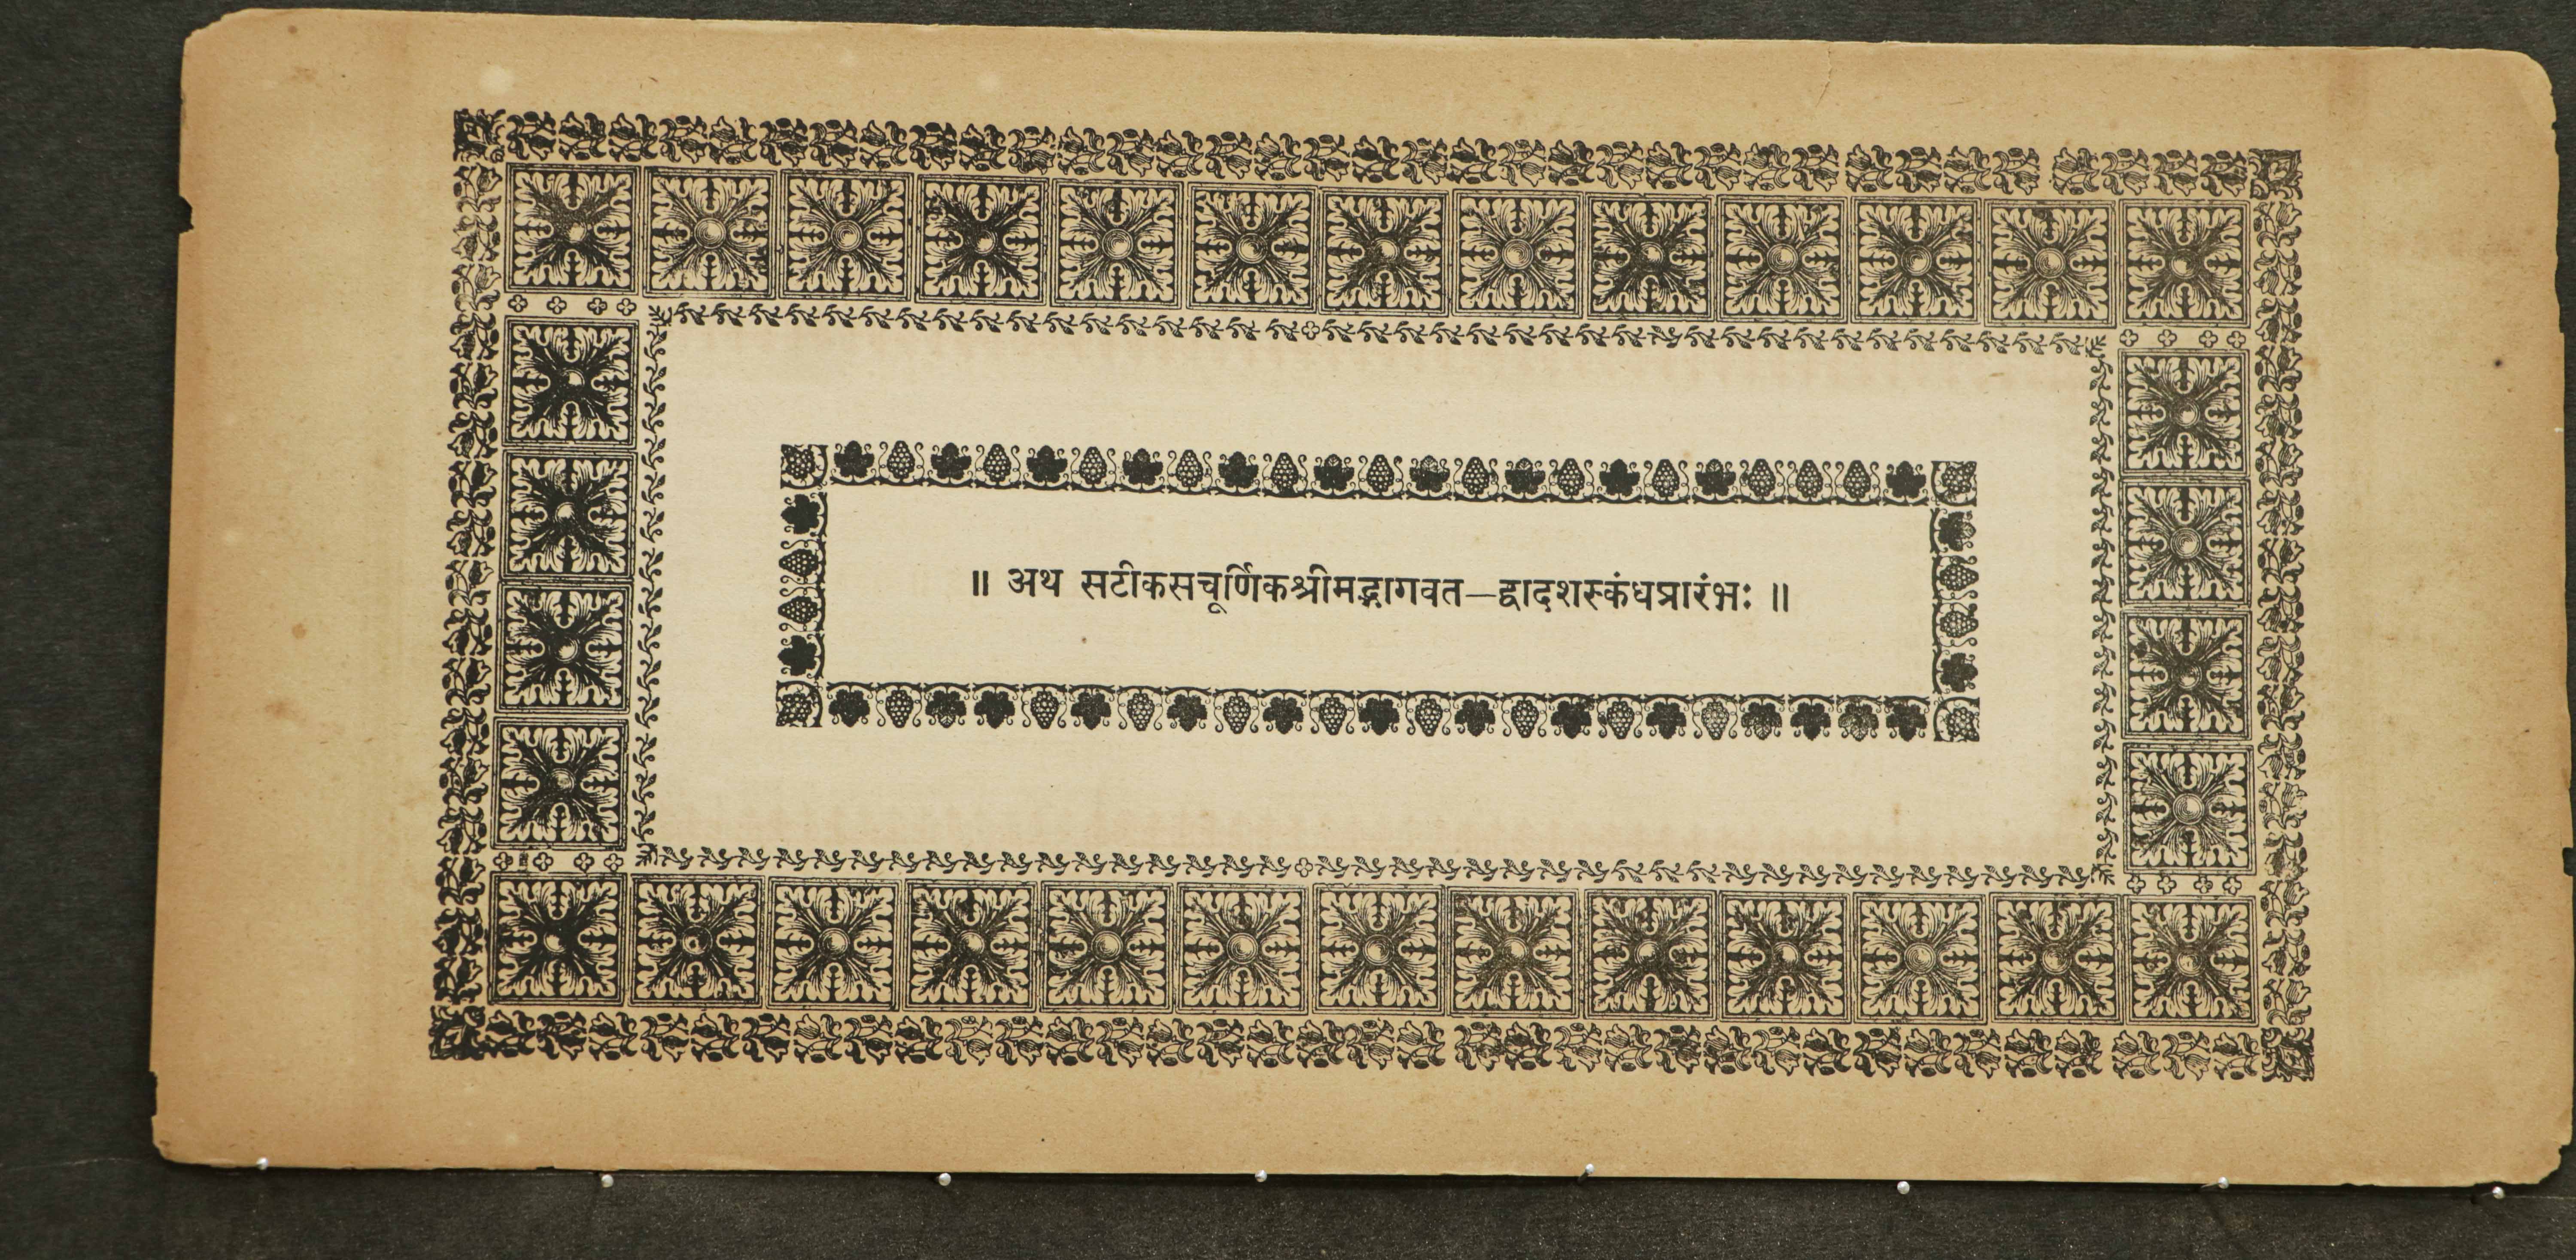 ॥ अथ सटीकसचूर्णिकश्रीमद्भागवत—द्वादशस्कंधप्रारंभः ॥